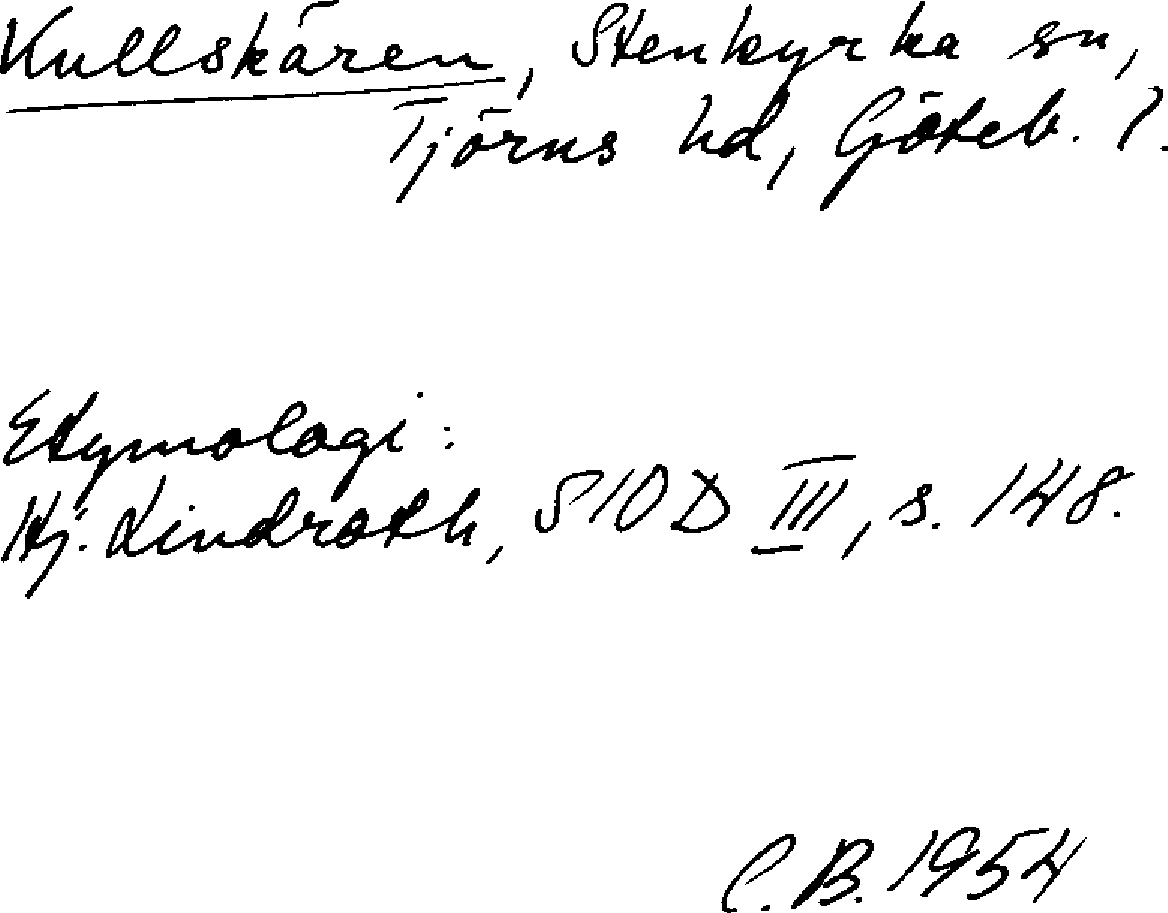 Kullskären, Stenkyrka sn,
Tjörns hd, Göteb. l.
Etymologi:
Hj. Lindroth, SIOD III, s. 148.
C. B. 1954